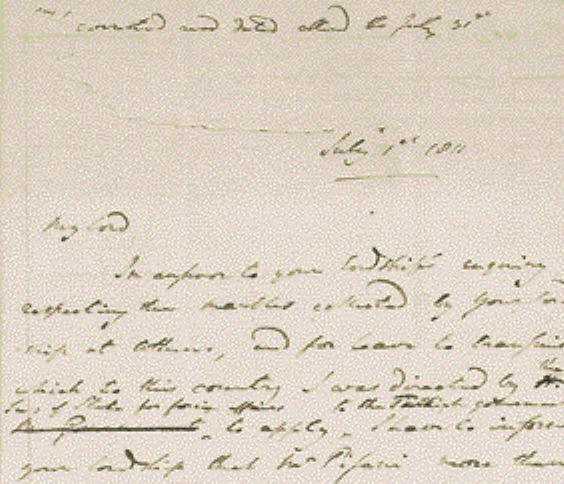 corrected and dated altered to July 31st
July 1st 1811
My Lord
In answer to your Lordship's enquiry
respecting the marbles collected by your Lord
ship at Athens, and for leave to transmit
which to this country I was directed by the
Sec. of State for foreign affairs to the Turkish governmen
to apply, I have to inform
your Lordship that Mr Pisani more than